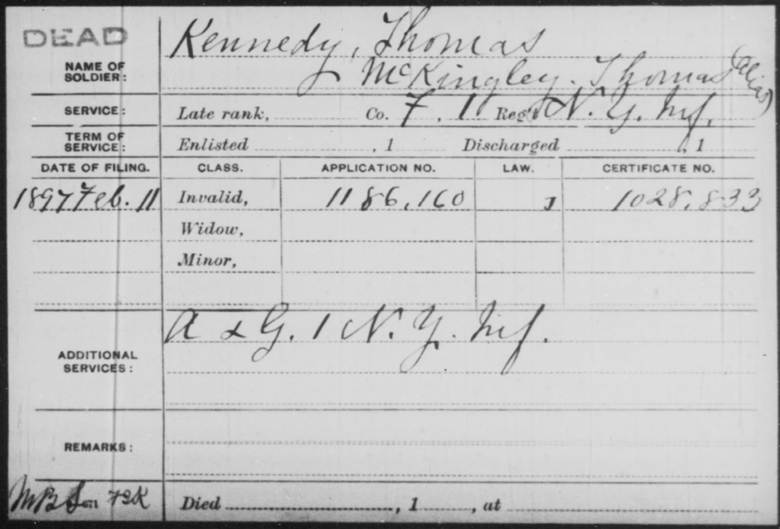 DEAD
NAME OF SOLDIER: Kennedy, Thomas
McKingley, Thomas (alias)
SERVICE: Late rank, Co. F. 1 Reg't N.Y. Inf.
TERM OF SERVICE: Enlisted , 1 Discharged , 1
DATE OF FILING. CLASS. APPLICATION NO. LAW. CERTIFICATE NO.
1897 Feb. 11 Invalid, 1186,160 J 1028,833
Widow,
Minor,
ADDITIONAL SERVICES: A & G. 1 N.Y. Inf.
REMARKS:
Died , 1 , at